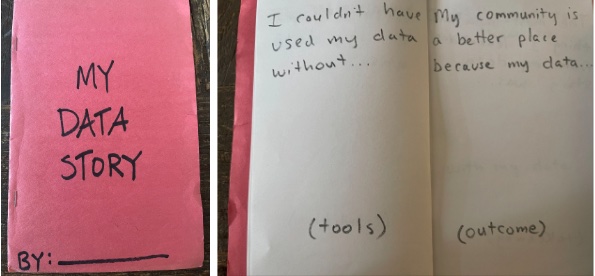 MY
DATA
STORY
BY:
I couldn't have
used my data
without...
(tools)
My community is
a better place
because my data...
(outcome)